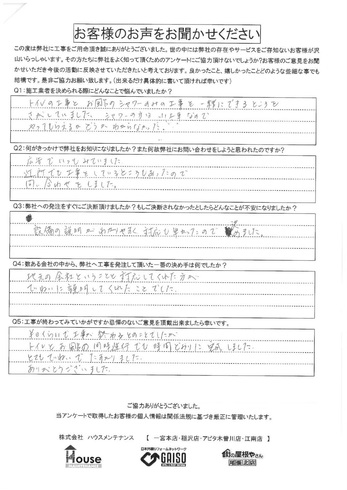 お客様のお声をお聞かせください
この度は弊社に工事をご用命頂き誠にありがとうございました。世の中には弊社の存在やサービスをご存じないお客様が沢
山いらっしゃいます。その方たちに弊社をよく知って頂くためのアンケートにご協力頂けないでしょうか?お客様のご意見をお聞
かせいただき今後の活動に反映させていただきたいと考えております。良かったこと、嬉しかったことどのような些細な事でも
結構です。是非ご協力お願い致します。(出来るだけ具体的に書いて頂ければ幸いです)
Q1:施工業者を決められる際にどんなことで悩んでいましたか?
トイレの工事と お風呂のシャワーのみの工事を一緒にできるところを
さがしていました。 シャワーの方は 小工事なので
やってもらえるか どうか わからなかった。
Q2:何がきっかけで弊社をお知りになりましたか?また何故弊社にお問い合わせをしようと思われたのですか?
広告で いつも みていました
近所でも工事をしているところもあったので
問い合わせをしました。
Q3:弊社への発注をすぐにご決断頂けましたか?もしご決断されなかったとしたらどんなことが不安になりましたか?
設備の説明が わかりやすく 対応も早かったので 決めました。
Q4:数ある会社の中から、弊社へ工事を発注して頂いた一番の決め手は何でしたか?
地元の会社ということと 対応してくれた方が
ていねいに説明してくれた ことでした。
Q5:工事が終わってみていかがですか忌憚のないご意見を頂戴出来ましたら幸いです。
トイレとお風呂の同時進行でも 時間どおりに 完了しました。
とても ていねいで たすかりました
ありがとうございました。
ご協力ありがとうございました。
当アンケートで取得したお客様の個人情報は関係法規に基づき厳正に管理いたします。
株式会社 ハウスメンテナンス 【 一宮本店・稲沢店・アピタ木曽川店・江南店 】
House
日本外装リフォームネットワーク
GAISO
街の屋根やさん